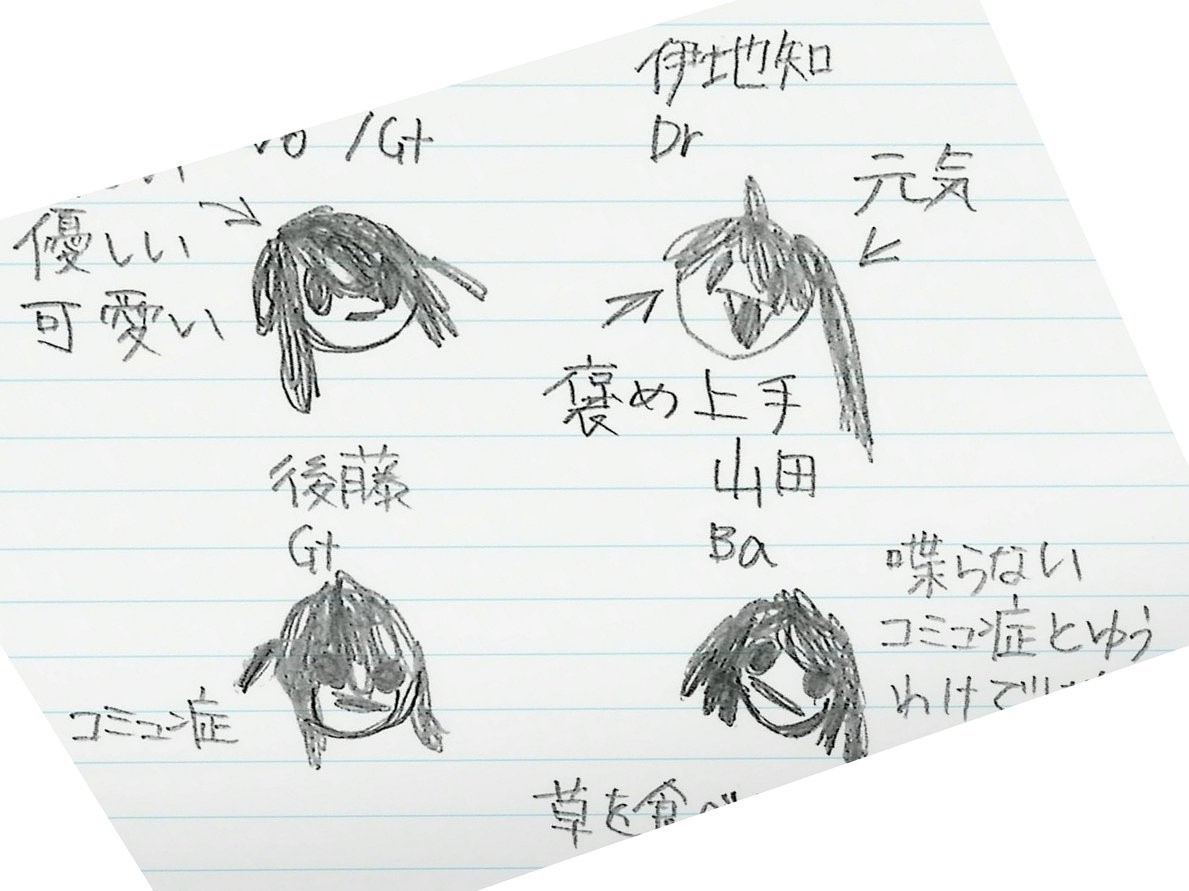 伊地知
Dr
Vo /Gt
元気
優しい
可愛い
褒め上手
後藤
Gt
山田
Ba
喋らない
コミュ症とゆう
わけで
コミュ症
草を食べ